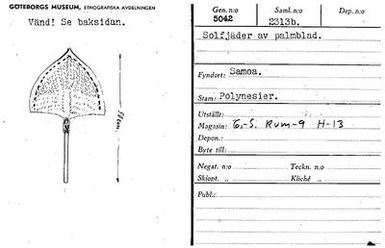 GÖTEBORGS MUSEUM, ETNOGRAFISKA AVDELNINGEN
Vänd! Se baksidan.
Gen. n:o
5042
Saml. n:o
2313b.
Dep. n:o
Solfjäder av palmblad.
Fyndort: Samoa.
Stam: Polynesier.
Utställt:
Magasin: G.-S. Rum-9 H-13
Depon.:
Byte till:
Negat. n:o
Teckn. n:o
Skiopt. „
Kliché „
Publ.: